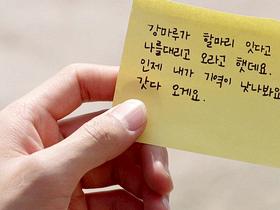 강마루가 할마리 잇다고
나를대리고 오라고 햇데요.
인제 내가 기역이 낫나봐요
갓다 오게요.